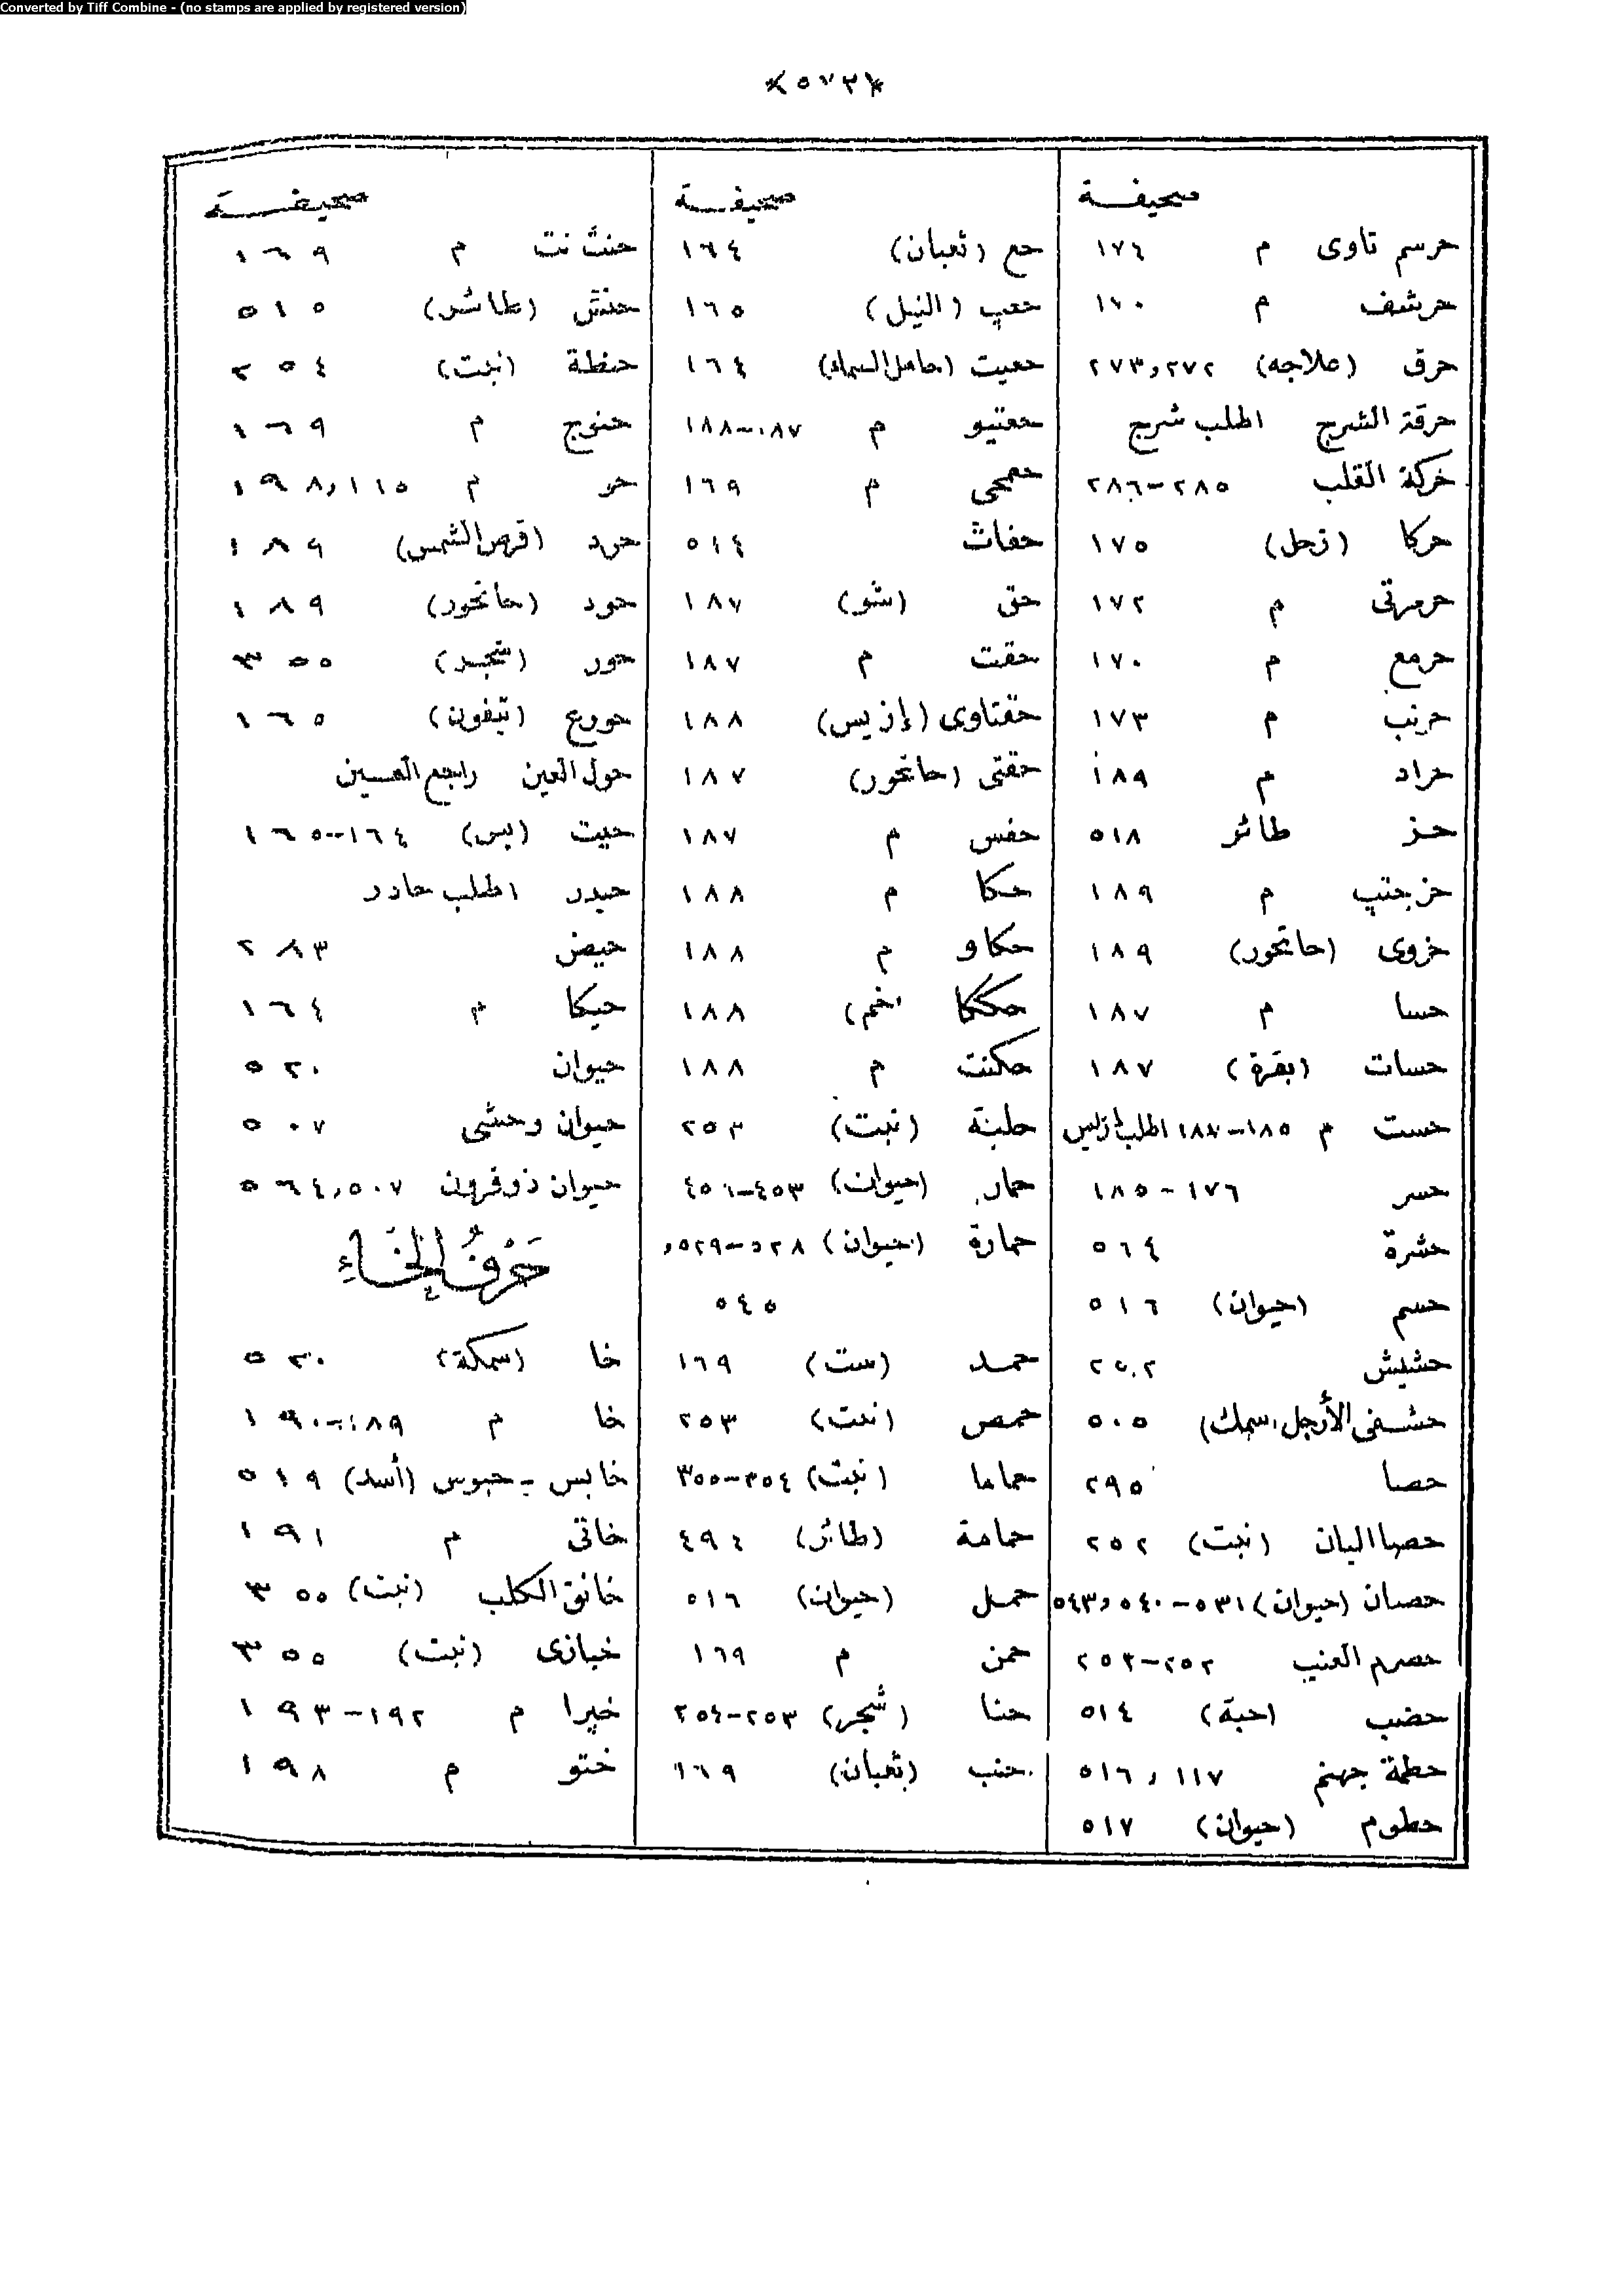 Converted by Tiff Combine - (no stamps are applied by registered version)
﴿٥٧٢﴾
صحيفة
حرسم تاوى م ١٧٤
حرشف م ١٧٠
حرق (علاجه) ٢٧٢,٢٧٣
حرقة الشرج اطلب شرج
حركة القلب ٢٨٥-٢٨٦
حركا (زحل) ١٧٥
حرمرتى م ١٧٢
حرمع م ١٧٠
حرنب م ١٧٣
حراد م ١٨٩
حز طائر ٥١٨
حزجتپ م ١٨٩
حزوى (حاتحور) ١٨٩
حسا م ١٨٧
حسات (بقرة) ١٨٧
حست م ١٨٥-١٨٧ اطلب إزيس
حسر ١٧٦-١٨٥
حشرة ٥٦٤
حسم (حيوان) ٥١٦
حشيش ٢٥٠٢
حشفى الأرجل (سمك) ٥٠٥
حصا ٢٩٥
حصا البان (نبت) ٢٥٢
حصان (حيوان) ٥٣١-٥٤٠,٥٤٣
حصرم العنب ٢٥٢-٢٥٣
حضب (حية) ٥١٤
حطمة جهنم ١١٧,٥١٦
حطوم (حيوان) ٥١٧
صحيفة
حع (ثعبان) ١٦٤
حعپ (النيل) ١٦٥
حعيت (حامل السماء) ١٦٤
حعتيو م ١٨٧-١٨٨
حمحى م ١٦٩
حفاث ٥١٤
حق (شو) ١٨٧
حقت م ١٨٧
حقتاوى (إزيس) ١٨٨
حقتى (حاتحور) ١٨٧
حفس م ١٨٧
حكا م ١٨٨
حكاو م ١٨٨
حككا (خم) ١٨٨
حكنت م ١٨٨
حلبة (نبت) ٢٥٣
حمار (حيوان) ٤٥٣-٤٥٦
حمارة (حيوان) ٥٢٨-٥٢٩,
٥٤٥
حمد (ست) ١٦٩
حمص (نبت) ٢٥٣
حماما (نبت) ٣٥٤-٣٥٥
حمامة (طائر) ٤٩٤
حمل (حيوان) ٥١٦
حمن م ١٦٩
حنا (شجر) ٢٥٣-٢٥٤
حنب (ثعبان) ١٦٩
صحيفة
حنث نت م ١٦٩
حنش (طائر) ٥١٥
حنطة (نبت) ٢٥٤
حنوج م ١٦٩
حر م ١١٥,١٩٨
حرد (قرص الشمس) ١٨٩
حود (حاتحور) ١٨٩
حور (شجر) ٣٥٥
حورع (تيفون) ١٦٥
حول العين راجع العين
حيت (بس) ١٦٤-١٦٥
حيدر اطلب حادر
حيض ٢٨٣
حيكا م ١٦٤
حيوان ٥٢٠
حيوان وحشى ٥٠٧
حيوان ذو قرون ٥٠٧,٥٦٤
حَرْفُ الخَاءِ
خا (سمكة) ٥٢٠
خا م ١٨٩-١٩٠
خابس - حبوس (أسد) ٥١٩
خاتى م ١٩١
خانق الكلب (نبت) ٣٥٥
خبازى (نبت) ٣٥٥
خپرا م ١٩٢-١٩٣
ختو م ١٩٨